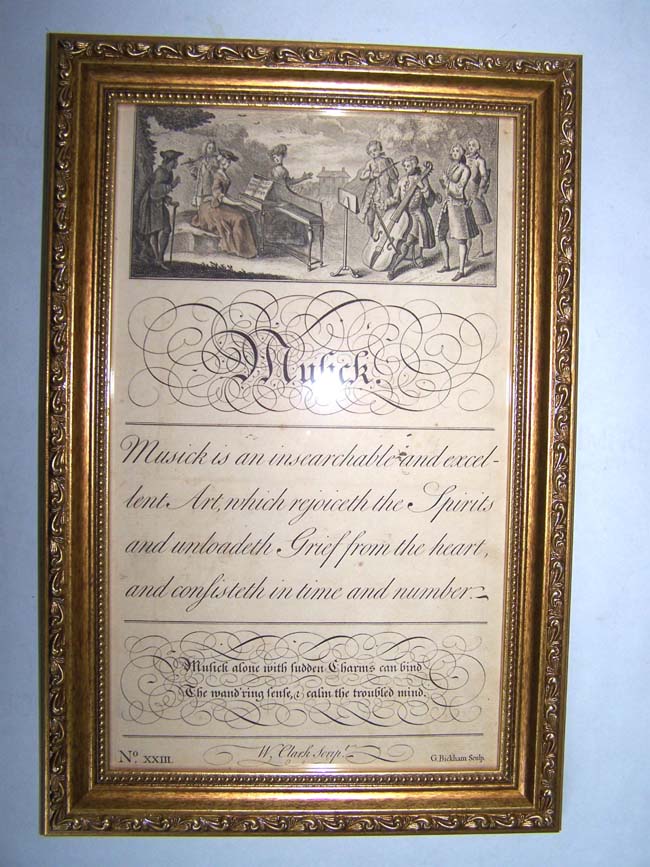 Musick.
Musick is an insearchable and excel-
lent Art, which rejoiceth the Spirits
and unloadeth Grief from the heart,
and conſisteth in time and number.
Muſick alone with ſudden Charms can bind
The wand'ring ſenſe, & calm the troubled mind.
No. XXIII. W. Clark Scrip.t G. Bickham Sculp.